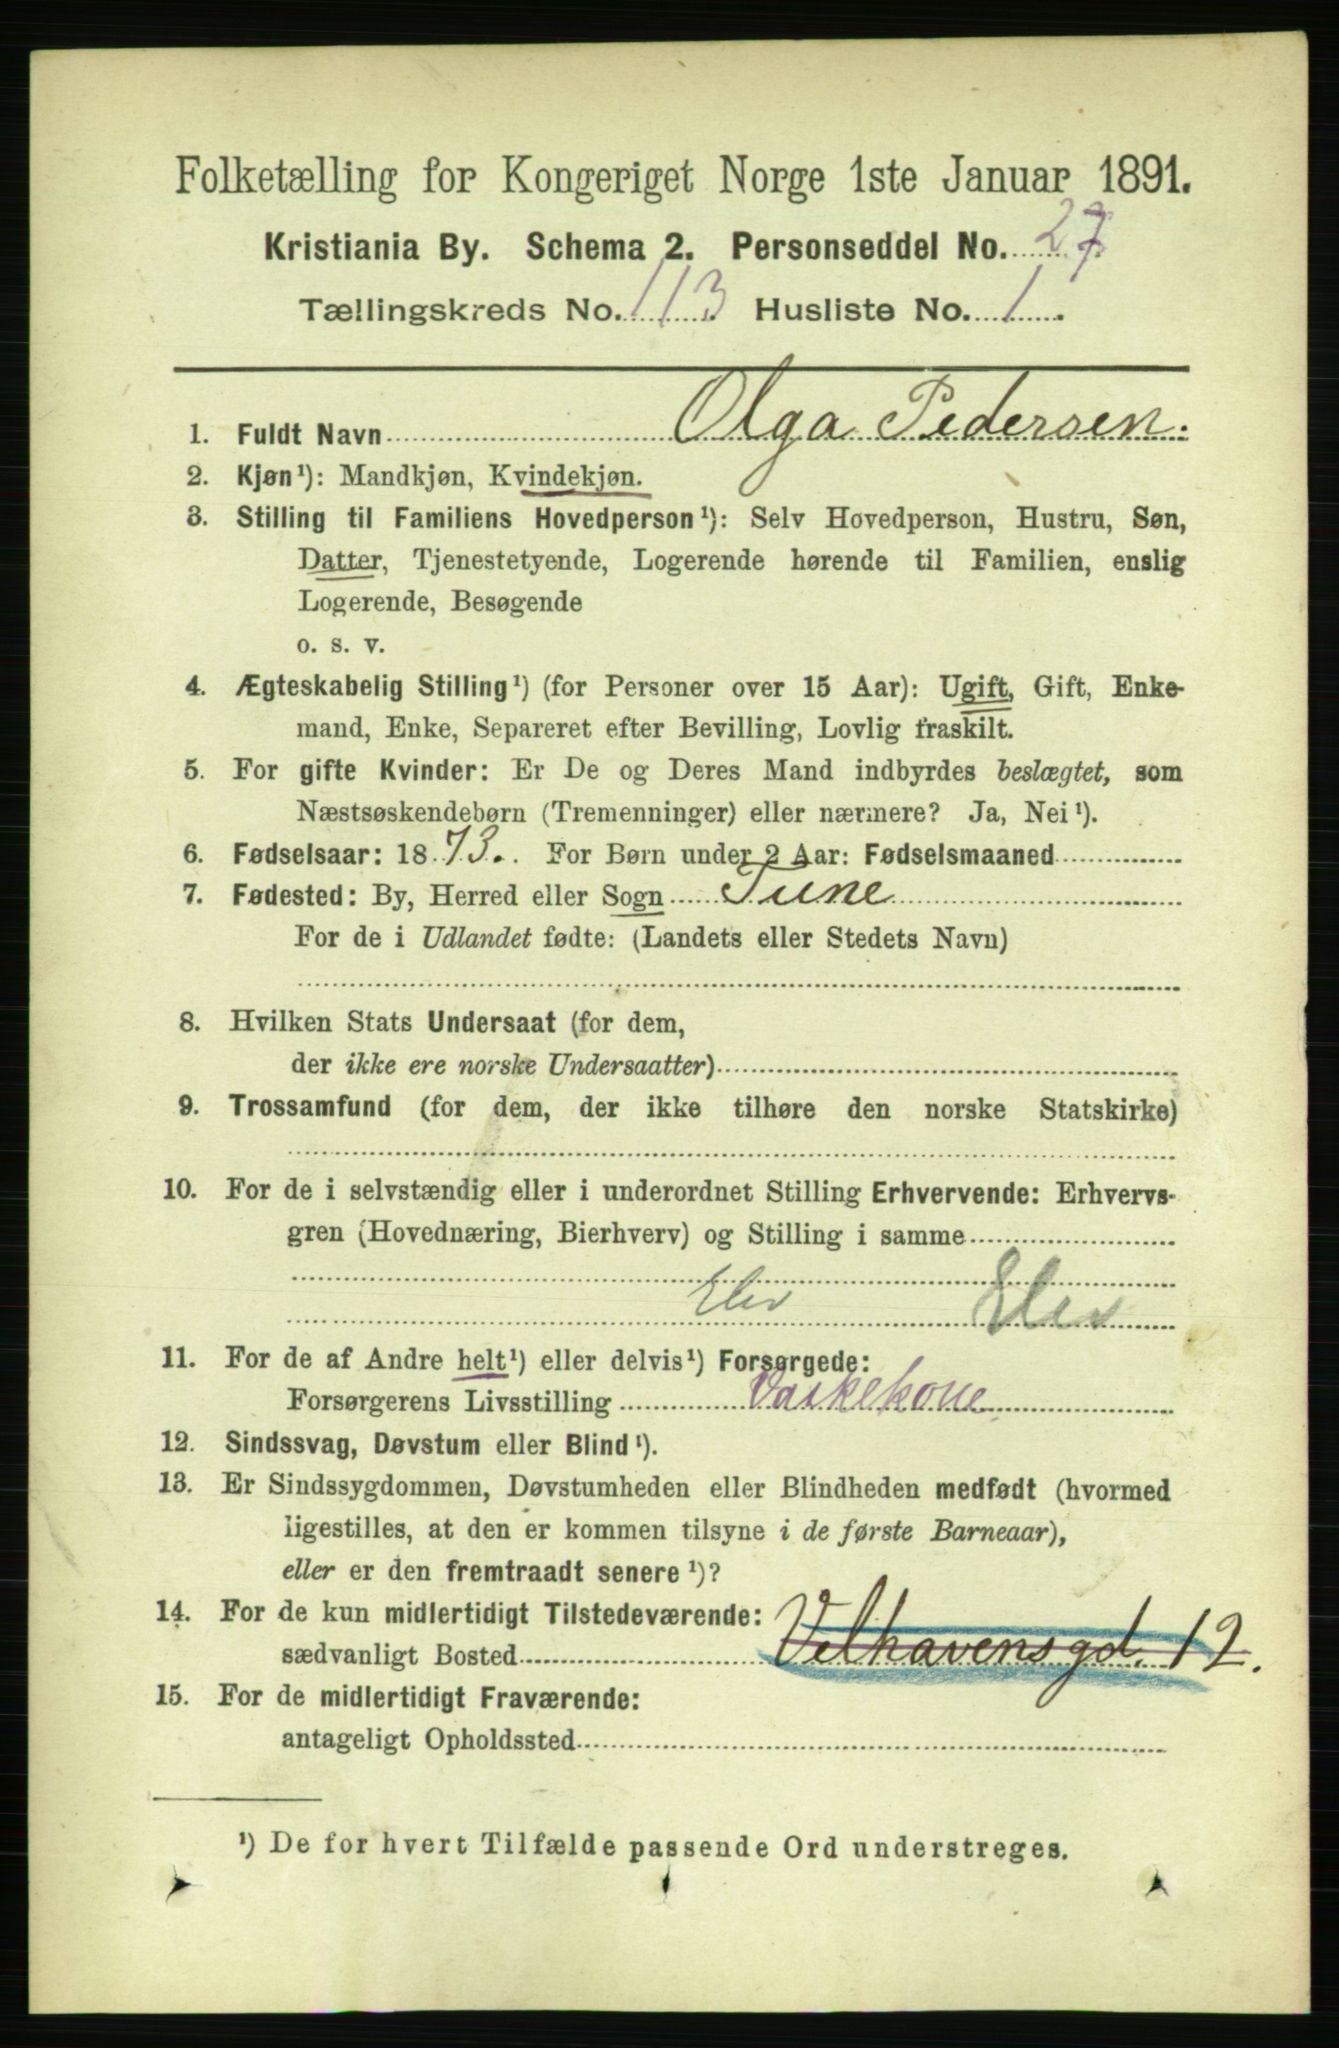 Folketælling for Kongeriget Norge 1ste Januar 1891.
Kristiania By. Schema 2. Personseddel No. 27
Tællingskreds No. 113 Husliste No. 1.
1. Fuldt Navn Olga Pedersen.
2. Kjøn¹): Mandkjøn, Kvindekjøn.
3. Stilling til Familiens Hovedperson¹): Selv Hovedperson, Hustru, Søn,
Datter, Tjenestetyende, Logerende hørende til Familien, enslig
Logerende, Besøgende
o. s. v.
4. Ægteskabelig Stilling¹) (for Personer over 15 Aar): Ugift, Gift, Enke-
mand, Enke, Separeret efter Bevilling, Lovlig fraskilt.
5. For gifte Kvinder: Er De og Deres Mand indbyrdes beslægtet, som
Næstsøskendebørn (Tremenninger) eller nærmere? Ja, Nei¹).
6. Fødselsaar: 1873. For Børn under 2 Aar: Fødselsmaaned
7. Fødested: By, Herred eller Sogn Tune
For de i Udlandet fødte: (Landets eller Stedets Navn)
8. Hvilken Stats Undersaat (for dem,
der ikke ere norske Undersaatter)
9. Trossamfund (for dem, der ikke tilhøre den norske Statskirke)
10. For de i selvstændig eller i underordnet Stilling Erhvervende: Erhvervs-
gren (Hovednæring, Bierhverv) og Stilling i samme
Elev Elev
11. For de af Andre helt¹) eller delvis¹) Forsørgede:
Forsørgerens Livsstilling Vaskekone
12. Sindssvag, Døvstum eller Blind¹).
13. Er Sindssygdommen, Døvstumheden eller Blindheden medfødt (hvormed
ligestilles, at den er kommen tilsyne i de første Barneaar),
eller er den fremtraadt senere¹)?
14. For de kun midlertidigt Tilstedeværende:
sædvanligt Bosted Velhavensgd. 12.
15. For de midlertidigt Fraværende:
antageligt Opholdssted
¹) De for hvert Tilfælde passende Ord understreges.